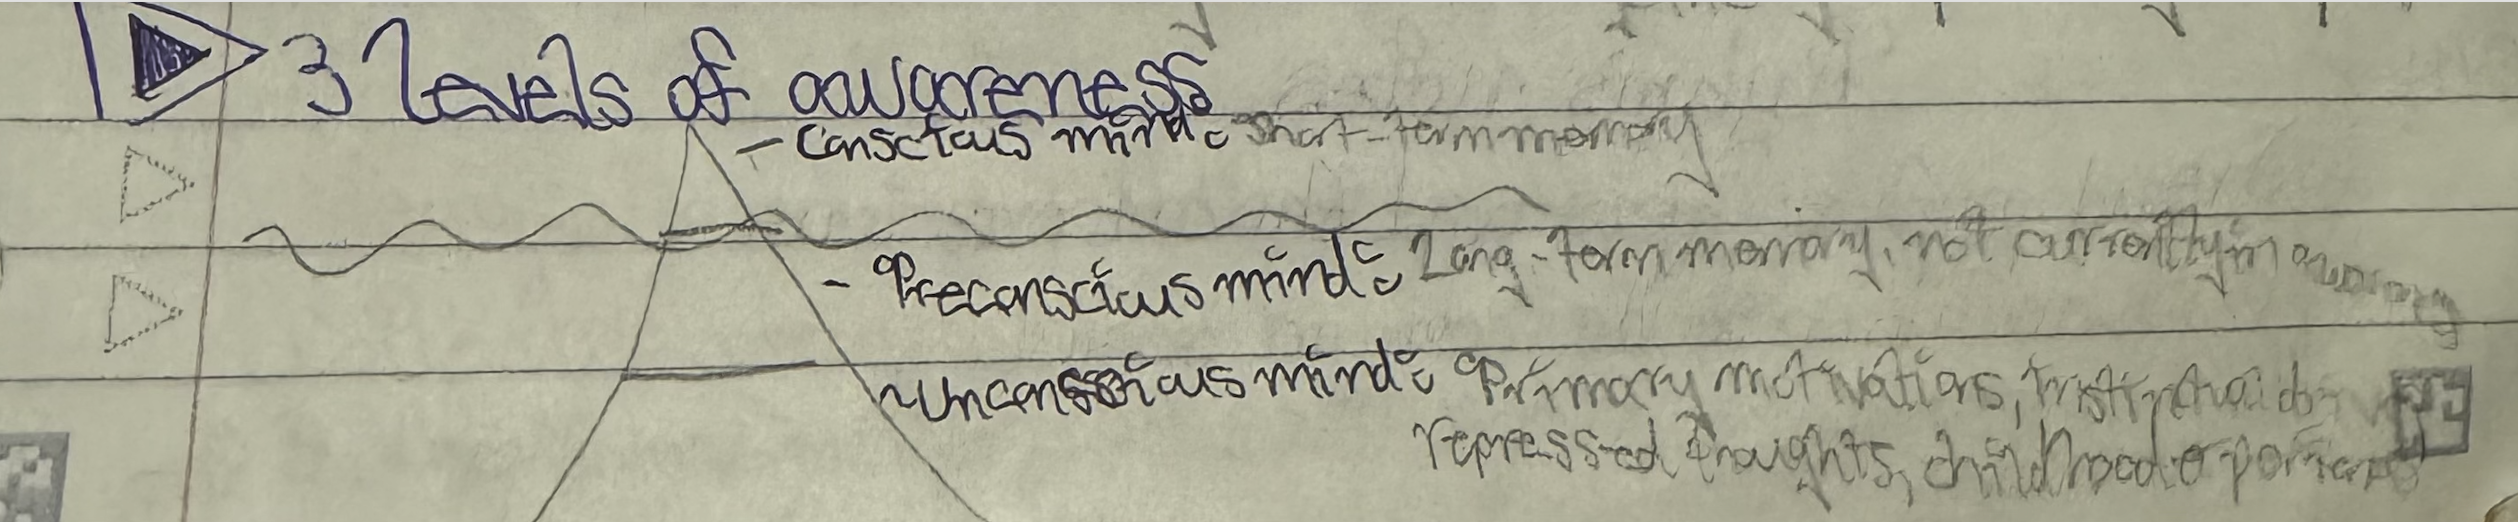 3 levels of awareness
- Conscious mind: Short-term memory
- Preconscious mind: Long-term memory, not currently in
~Unconscious mind: Primary motivations,
repressed thoughts, childhood